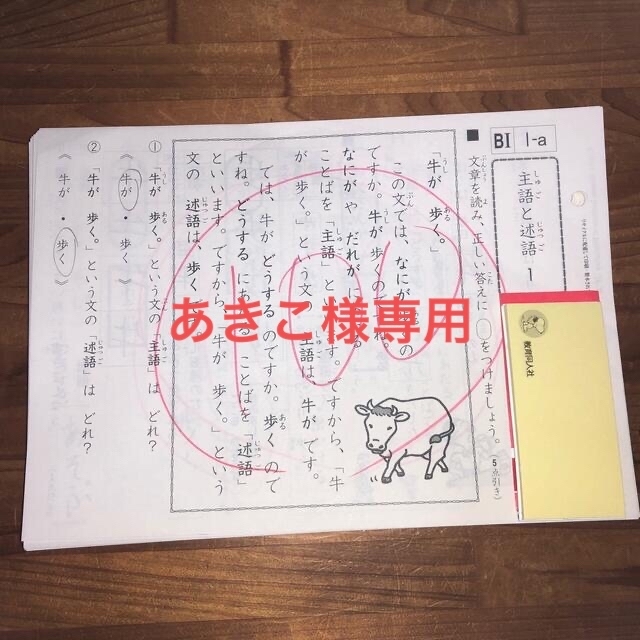 BI 1-a
主語と述語 1
しゅ ご じゅつ ご
教育同人社
■ 文章を読み、正しい答えに○をつけましょう。(5点引き)
「牛が 歩く。」
この文では、なにが の
ですか。牛が 歩くのですね。
なにが や だれが に る
ことばを「主語」と す。ですから、「牛
が 歩く。」という文の 主語は、牛が です。
では、牛が どうする のですか。歩く ので
すね。どうする にあ る ことばを「述語」
といいます。ですから、「牛が 歩く。」という
文の 述語は、歩く で
① 「牛が 歩く。」という文の「主語」は どれ?
《 牛が ・ 歩く 》
② 「牛が 歩く。」という文の「述語」は どれ?
《 牛が ・ 歩く 》
100
あきこ様専用